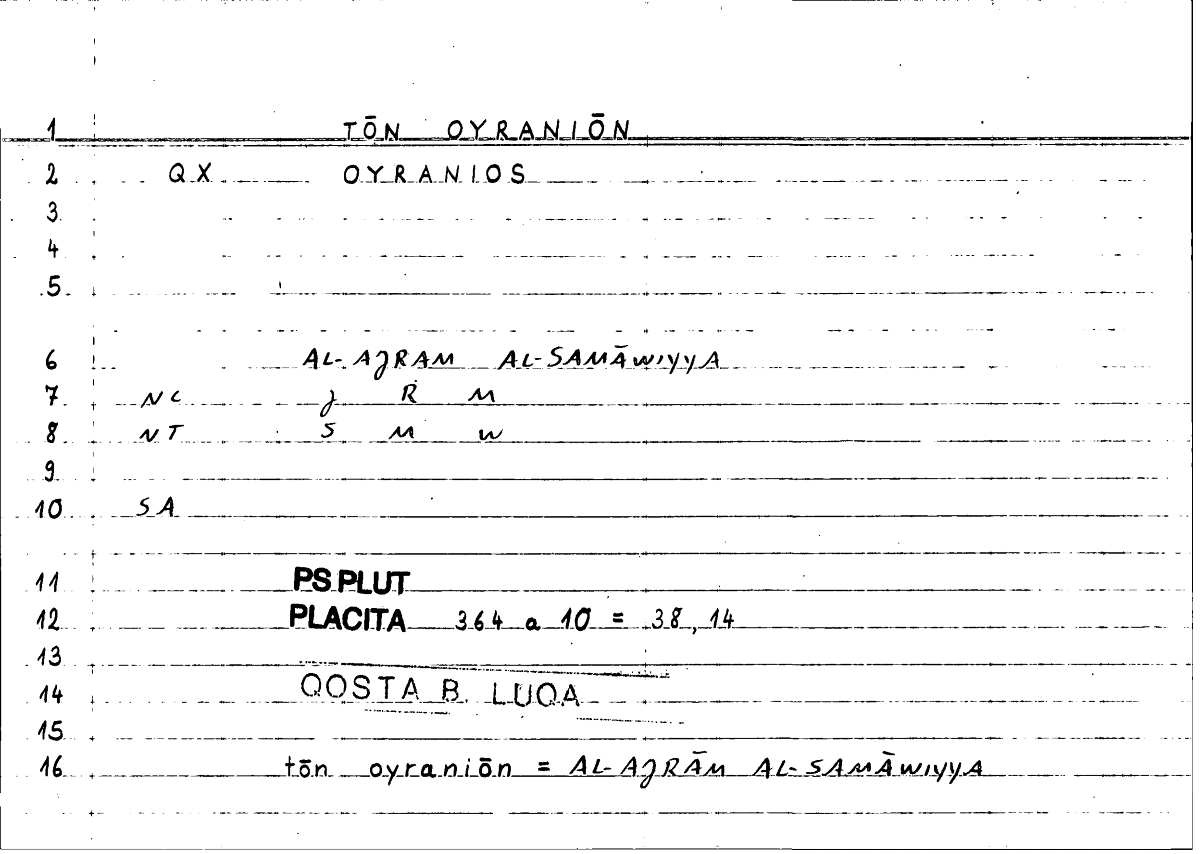 1 TŌN OYRANIŌN
2 QX OYRANIOS
3
4
5
6 AL-AJRAM AL-SAMĀWIYYA
7 NC J R M
8 NT S M W
9
10 SA
11 PS PLUT
12 PLACITA 364 a 10 = 38, 14
13
14 QOSTA B. LUQA
15
16 tōn oyraniōn = AL-AJRĀM AL-SAMĀWIYYA